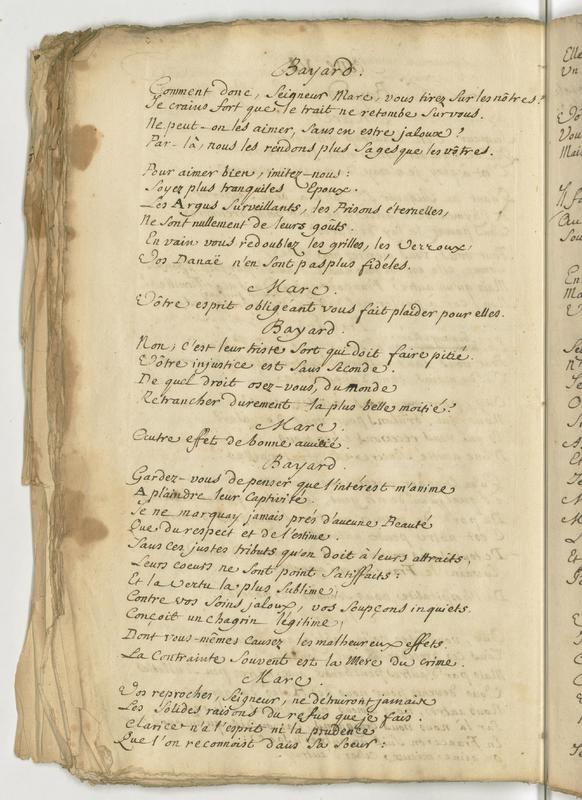 Bayard.
Comment donc, Seigneur Marc, vous tirez sur les nôtres?
Je crains fort que le trait ne retombe sur vous.
Ne peut-on les aimer, sans en estre jaloux?
Par-là, nous les rendons plus sages que les vôtres.
Pour aimer bien, imitez-nous:
Soyez plus tranquiles Epoux.
Les Argus surveillants, les Prisons éternelles,
Ne sont nullement de leurs goûts.
En vain vous redoublez les grilles, les verroux,
Vos Danaë n'en sont pas plus fidéles.
Marc.
Vôtre esprit obligeant vous fait plaider pour elles.
Bayard.
Non; c'est leur triste sort qui doit faire pitié.
Vôtre injustice est sans seconde.
De quel droit osez-vous, du monde
Retrancher durement la plus belle moitié?
Marc.
Outre effet de bonne amitié.
Bayard.
Gardez-vous de penser que l'intérest m'anime
A plaindre leur Captivité.
Je ne marquay jamais prés d'aucune Beauté
Que du respect et de l'estime.
Sans ces justes tributs qu'on doit à leurs attraits,
Leurs coeurs ne sont point satisfaits:
Et la vertu la plus sublime,
Contre vos soins jaloux, vos soupçons inquiets.
Conçoit un chagrin légitime,
Dont vous-mêmes causez les malheureux effets.
La Contrainte souvent est la Mere du crime.
Marc.
Vos reproches, Seigneur, ne détruiront jamais
Les solides raisons du refus que je fais.
Clarice n'a l'esprit ni la prudence
Que l'on reconnoist dans sa Soeur: